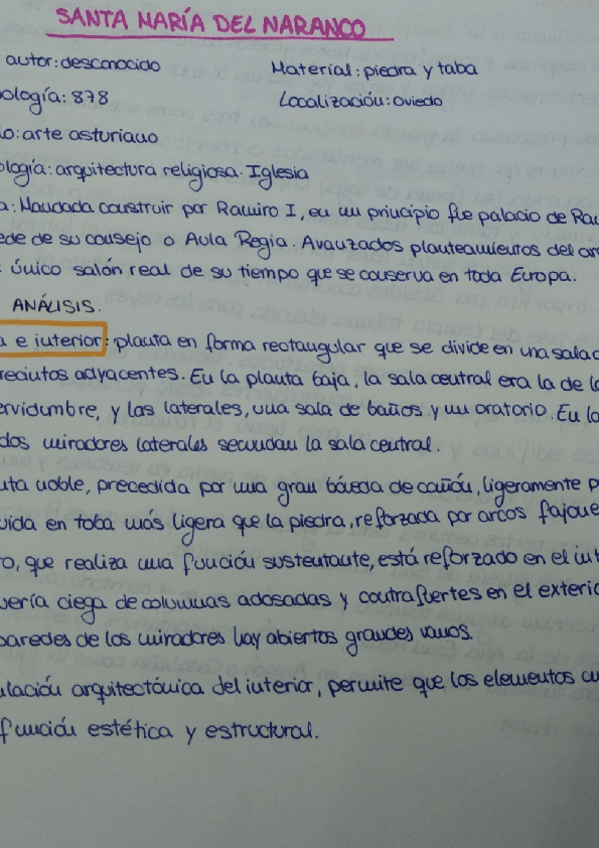 SANTA MARÍA DEL NARANCO
autor: desconocido Material: piedra y taba
ología: 878 Localización: Oviedo
lo: arte asturiano
ología: arquitectura religiosa. Iglesia
a: Mandada construir por Ramiro I, en un principio fue palacio de Ra
ede de su consejo o Aula Regia. Avanzados planteamientos del ar
único salón real de su tiempo que se conserva en toda Europa.
ANÁLISIS.
a e interior: planta en forma rectangular que se divide en una sala c
recintos adyacentes. En la planta baja, la sala central era la de la
ervidumbre, y las laterales, una sala de baños y un oratorio. En la
dos miradores laterales secundan la sala central.
nta noble, precedida por una gran bóveda de cañón, ligeramente p
uida en toba más ligera que la piedra, reforzada por arcos fajone
ro, que realiza una función sustentante, está reforzado en el int
uería ciega de columnas adosadas y contrafuertes en el exterio
paredes de los miradores hay abiertos grandes vanos.
ulación arquitectónica del interior, permite que los elementos cu
función estética y estructural.